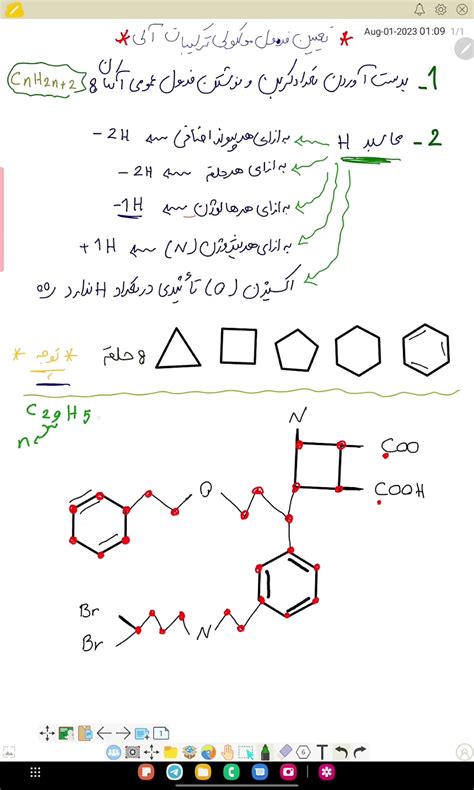 Aug-01-2023 01:09 1/1
* تعیین فرمول مولکولی ترکیبات آلی *
1- بدست آوردن تعداد کربن و نوشتن فرمول عمومی آلکان 8 CnH2n+2
2- محاسبه H
به ازای هر پیوند اضافی → -2H
به ازای هر حلقه → -2H
به ازای هر هالوژن → -1H
به ازای هر نیتروژن (N) → +1H
اکسیژن (O) تأثیری در تعداد H ندارد
* توجه * حلقه 8
C29H5
n
N
COO
COOH
O
Br
Br
N
1
6
T